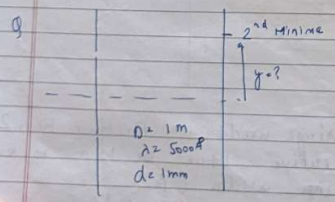 Q
2nd Minima
y=?
D = 1 m
λ = 5000Å
d = 1mm